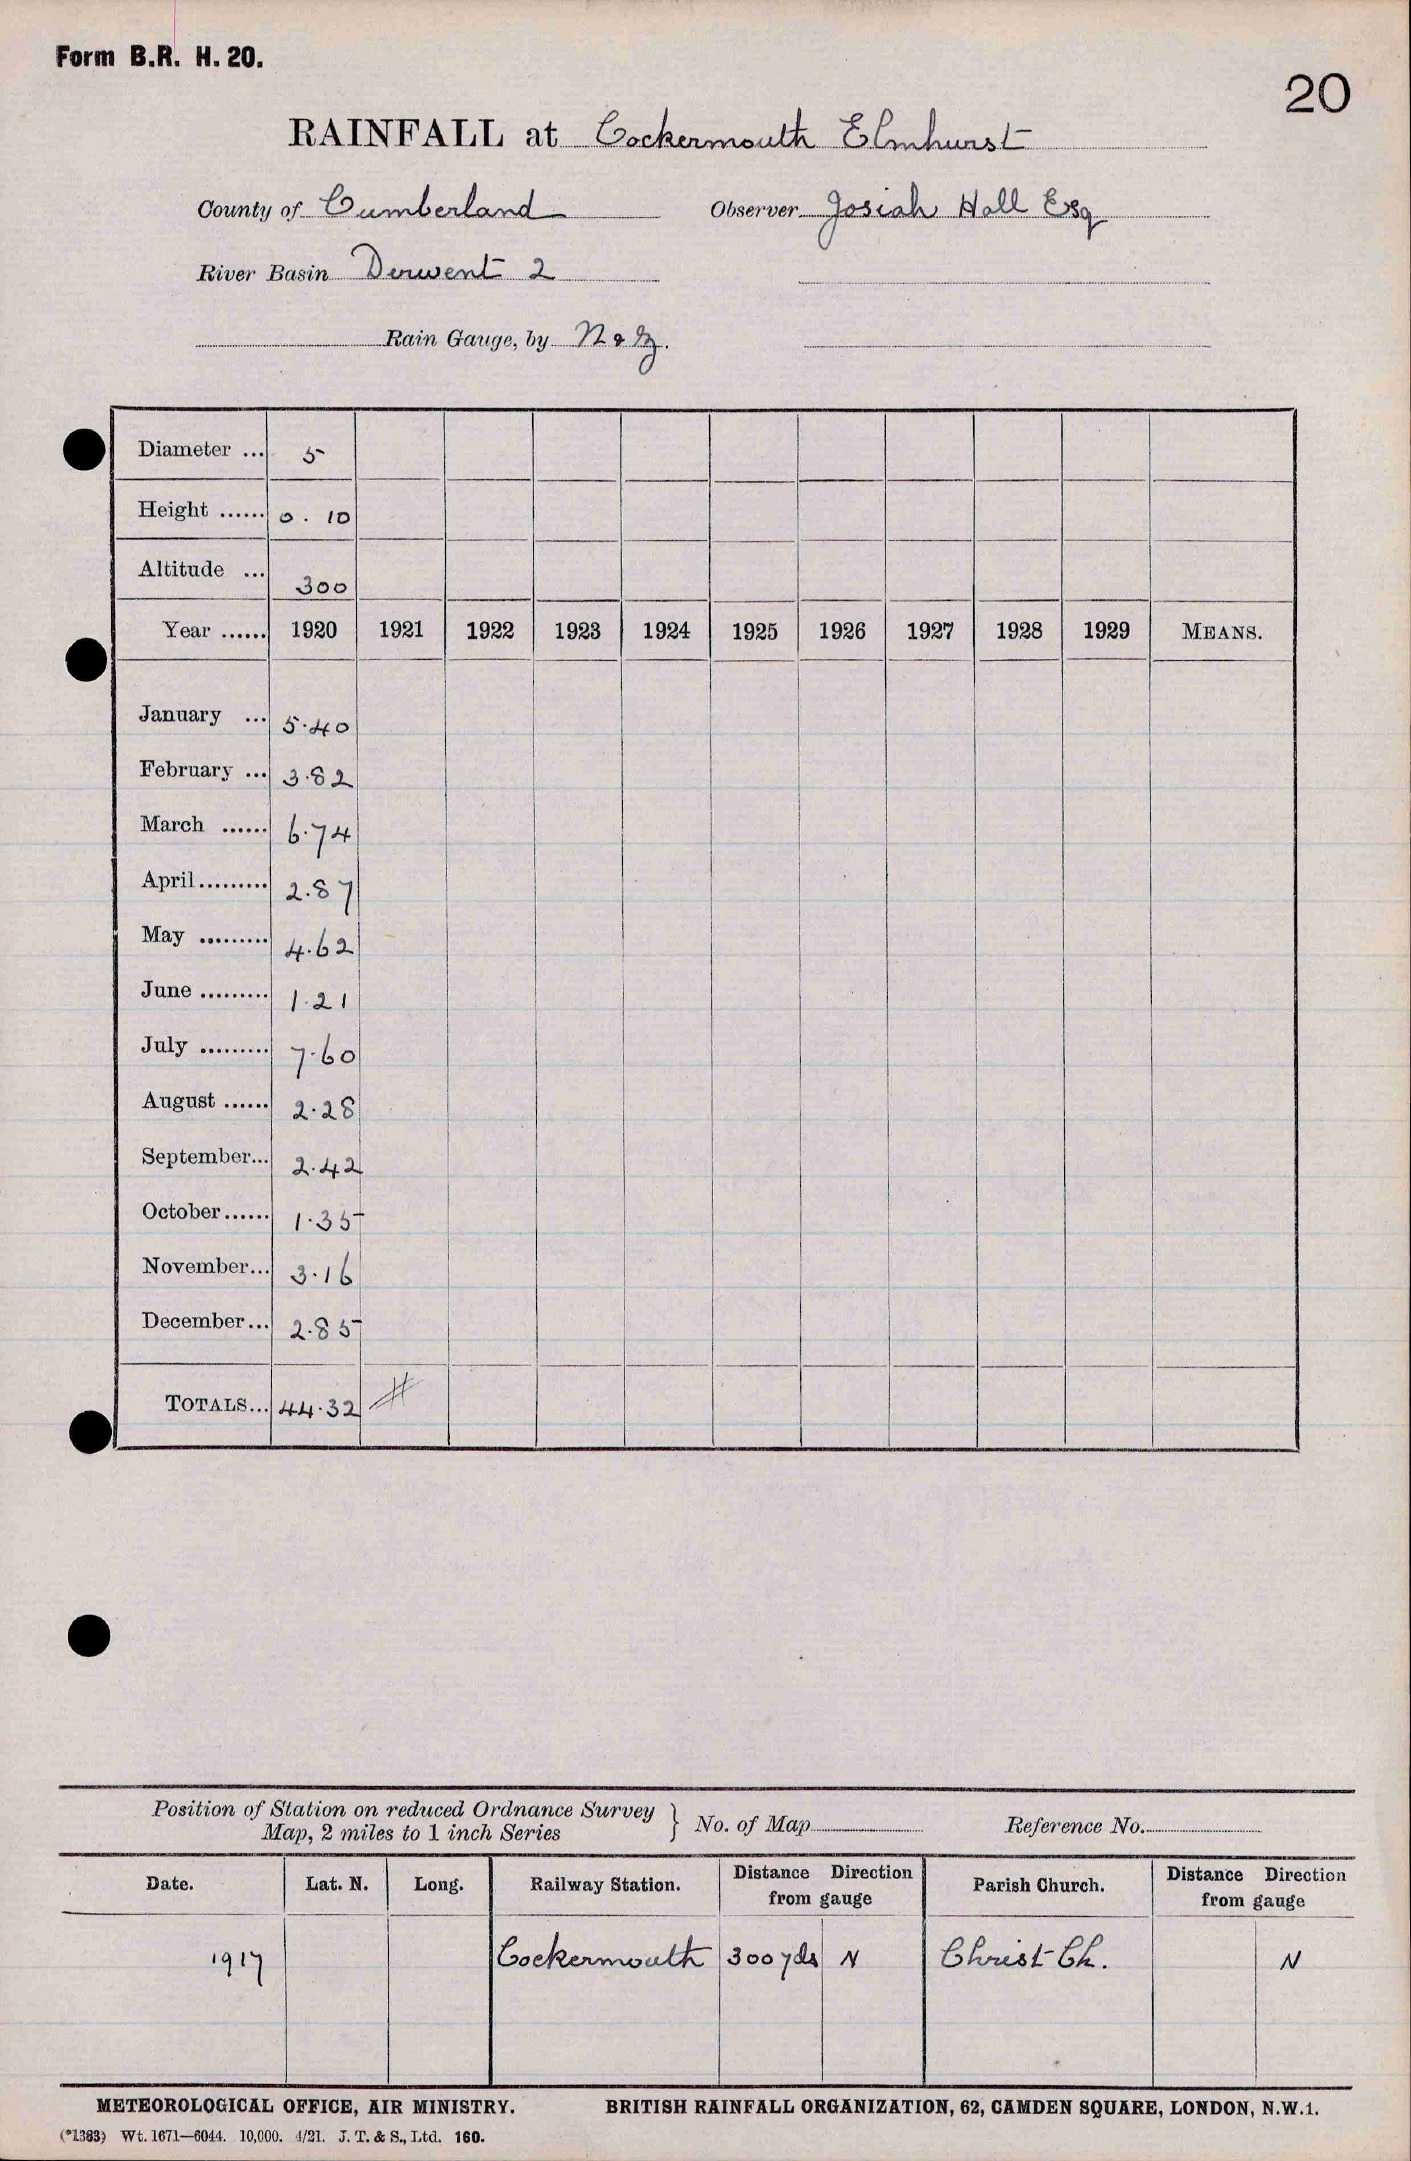 Form B.R. H. 20.
20
RAINFALL at Cockermouth Elmhurst
County of Cumberland Observer Josiah Hall Esq
River Basin Derwent 2
Rain Gauge, by N & Z.
Diameter ... 5
Height ...... 0. 10
Altitude ... 300
Year ...... 1920 1921 1922 1923 1924 1925 1926 1927 1928 1929 MEANS.
January ... 5.40
February ... 3.82
March ...... 6.74
April......... 2.87
May ......... 4.62
June ......... 1.21
July ......... 7.60
August ...... 2.28
September... 2.42
October...... 1.35
November... 3.16
December... 2.85
TOTALS... 44.32 #
Position of Station on reduced Ordnance Survey
Map, 2 miles to 1 inch Series } No. of Map Reference No.
Date. Lat. N. Long. Railway Station. Distance Direction from gauge Parish Church. Distance Direction from gauge
1917 Cockermouth 300 yds N Christ Ch. N
METEOROLOGICAL OFFICE, AIR MINISTRY. BRITISH RAINFALL ORGANIZATION, 62, CAMDEN SQUARE, LONDON, N.W.1.
(*1383) Wt. 1671—6044. 10,000. 4/21. J. T. & S., Ltd. 160.